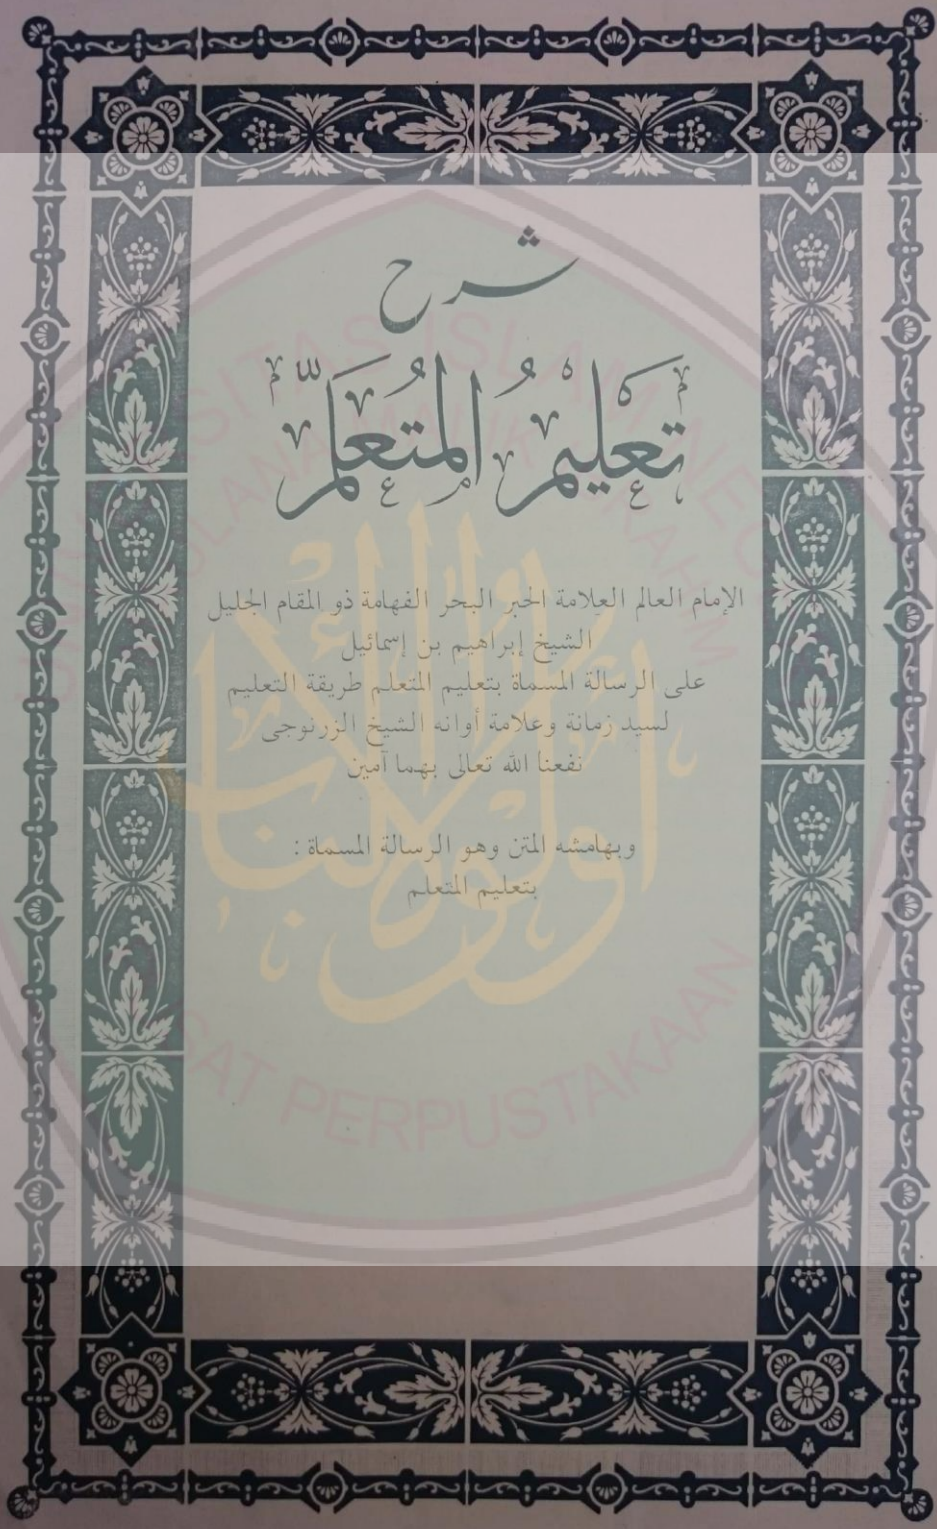 شرح
تعليم المتعلم
الإمام العالم العلامة الحبر البحر الفهامة ذو المقام الجليل
الشيخ إبراهيم بن إسمائيل
على الرسالة المسماة بتعليم المتعلم طريقة التعليم
لسيد زمانة وعلامة أوانه الشيخ الزرنوجى
نفعنا الله تعالى بهما آمين
وبهامشه المتن وهو الرسالة المسماة :
بتعليم المتعلم
PERPUSTAKAAN